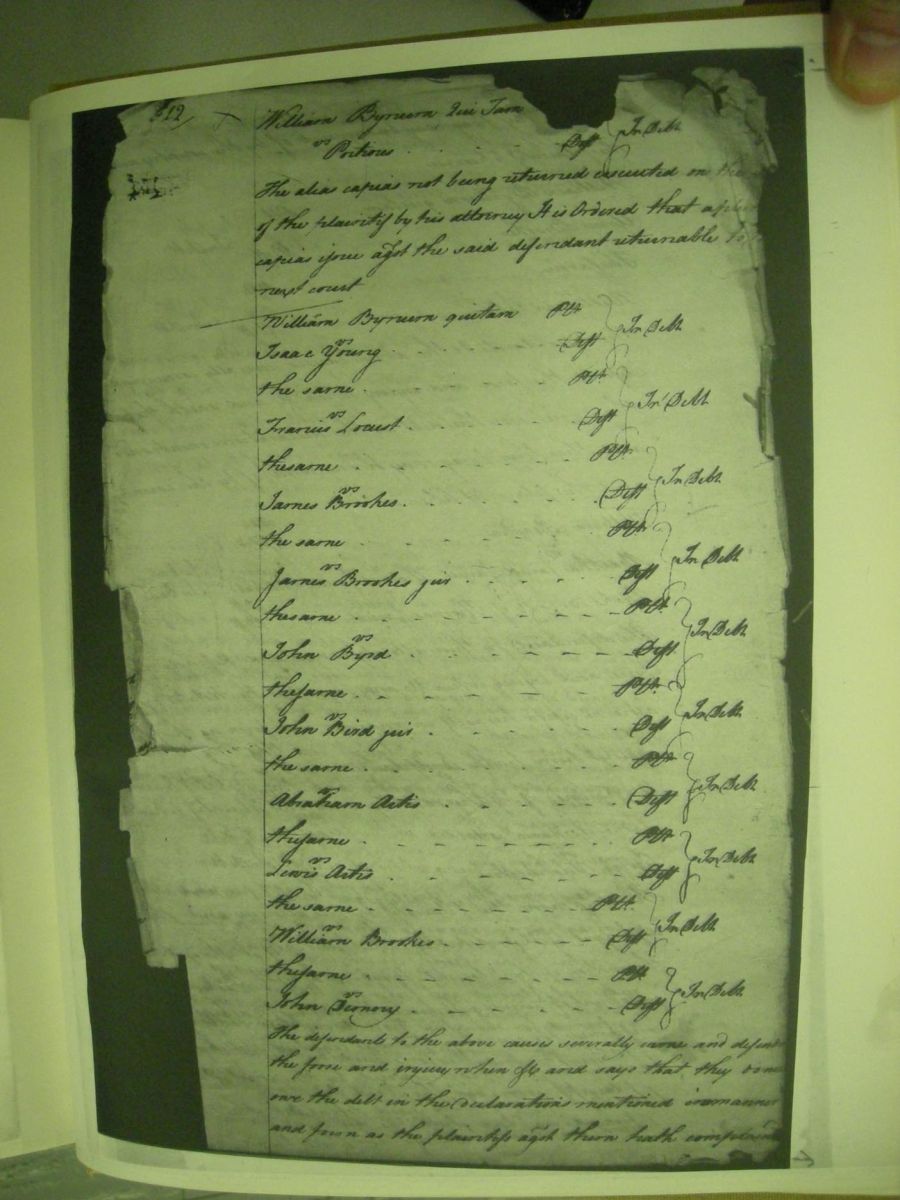 William Byrum Qui Tam
vs
Deft In Debt
The alias capias not being returned executed on the
of the plaintif by his attorney It is Ordered that a
capias issue agst the said defendant returnable to
next court
William Byrum quitam Plt
vs In Debt
Isaac Young Deft
the same Plt
vs In Debt
Francis Locust Deft
the same Plt
vs In Debt
James Brookes Deft
the same Plt
vs In Debt
James Brookes jur Deft
the same Plt
vs In Debt
John Byrd Deft
the same Plt
vs In Debt
John Bird jur Deft
the same Plt
vs In Debt
Abraham Artis Deft
the same Plt
vs In Debt
Lewis Artis Deft
the same Plt
vs In Debt
William Brookes Deft
the same Plt
vs In Debt
John Deft
The defendants to the above causes severally came and defend
the force and injury when &c and says that they do not
owe the debt in the declarations mentioned in manner
and form as the plaintiffs agst them hath complained